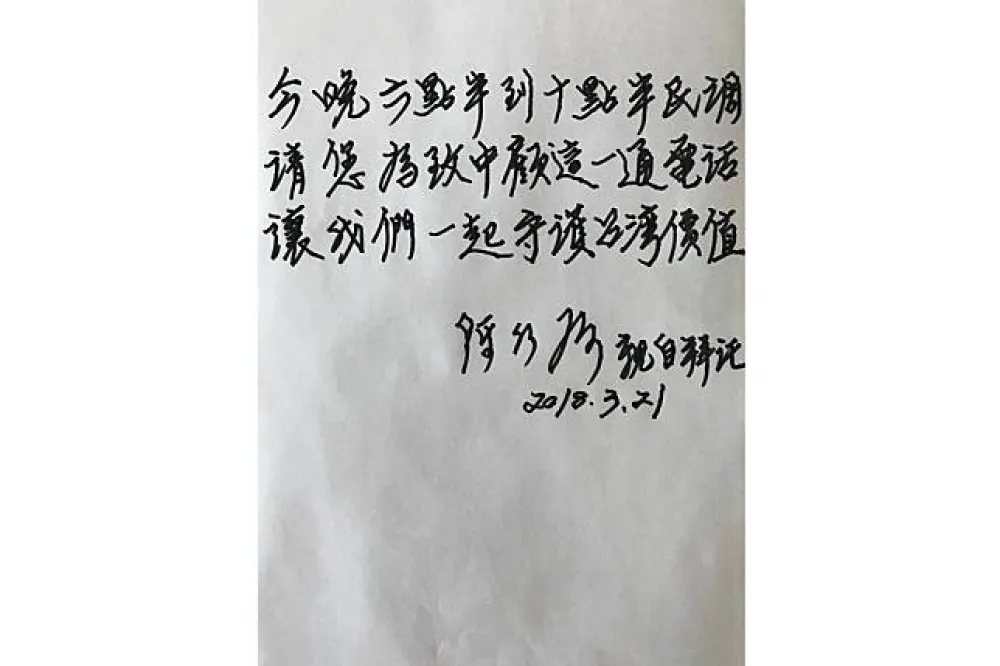 今晚六點半到十點半民調
請您為致中顧這一通電話
讓我們一起守護台湾價值
陳水扁 親自拜託
2018.3.21